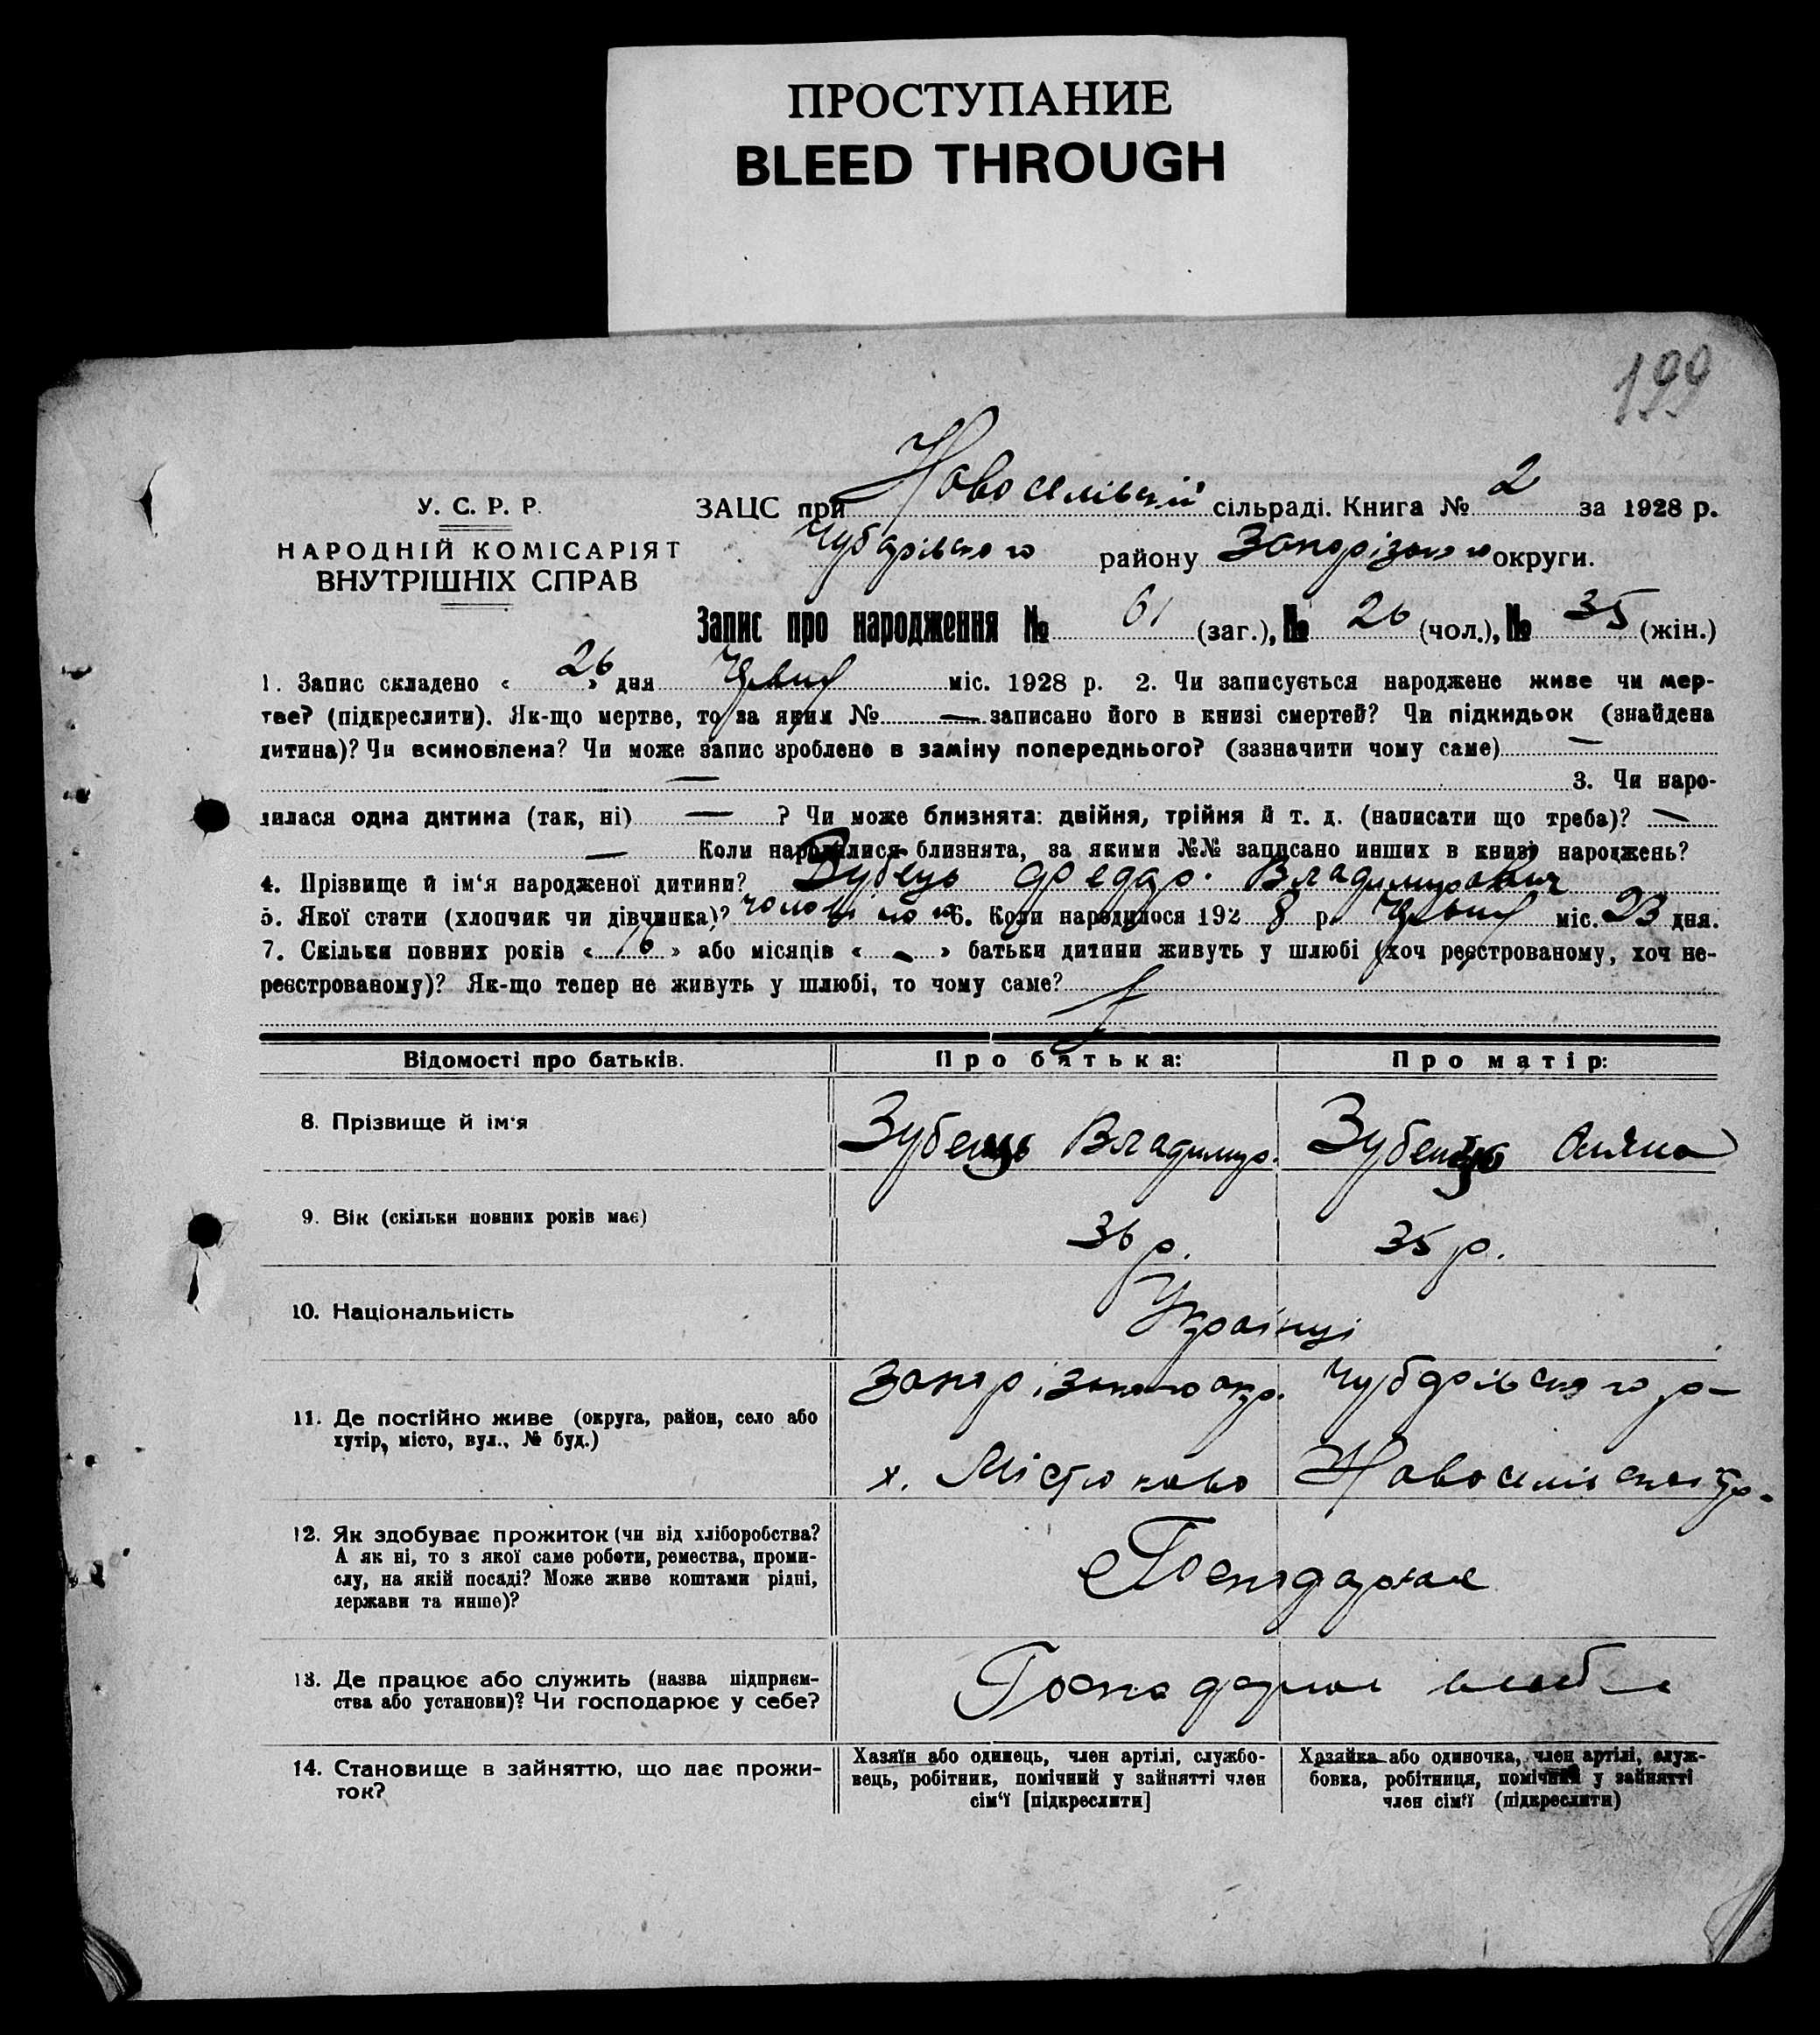 ПРОСТУПАНИЕ
BLEED THROUGH
199
У. С. Р. Р.
НАРОДНІЙ КОМІСАРІЯТ
ВНУТРІШНІХ СПРАВ
ЗАЦС при Новоселівській сільраді. Книга № 2 за 1928 р.
Чубарівського району Запорізького округи.
Запис про народження № 61 (заг.), № 26 (чол.), № 35 (жін.)
1. Запис складено « 26 » дня міс. 1928 р. 2. Чи записується народжене живе чи мер-
тве? (підкреслити). Як-що мертве, то за яким № — записано його в книзі смертей? Чи підкидьок (знайдена
дитина)? Чи всиновлена? Чи може запис зроблено в заміну попереднього? (зазначити чому саме) —
— 3. Чи наро-
дилася одна дитина (так, ні) — ? Чи може близнята: двійня, трійня й т. д. (написати що треба)? —
— Коли народилися близнята, за якими №№ записано инших в книзі народжень?
4. Прізвище й ім'я народженої дитини? Зубець Владимирович
5. Якої статі (хлопчик чи дівчинка)? 6. Коли народилося 192 8 р. міс. 23 дня.
7. Скільки повних років « 16 » або місяців « - » батьки дитини живуть у шлюбі (хоч реєстрованому, хоч не-
реєстрованому)? Як-що тепер не живуть у шлюбі, то чому саме?
Відомості про батьків. Про батька: Про матір:
8. Прізвище й ім'я Зубець Владимир. Зубець
9. Вік (скільки повних років має) 36 р. 35 р.
10. Національність Українці
Запорізького окр. Чубарівського р-
11. Де постійно живе (округа, район, село або
хутір, місто, вул., № буд.)
х. Новоселівської
12. Як здобуває прожиток (чи від хліборобства?
А як ні, то з якої саме роботи, ремества, проми-
слу, на якій посаді? Може живе коштами рідні,
держави та инше)?
Господарює
13. Де працює або служить (назва підприєм-
ства або установи)? Чи господарює у себе?
Господарює
14. Становище в зайняттю, що дає прожи-
ток?
Хазяїн або одинець, член артілі, службо-
вець, робітник, помічний у зайнятті член
сім'ї [підкреслити]
Хазяйка або одиночка, член артілі, служ-
бовка, робітниця, помічний у зайнятті
член сім'ї (підкреслити)